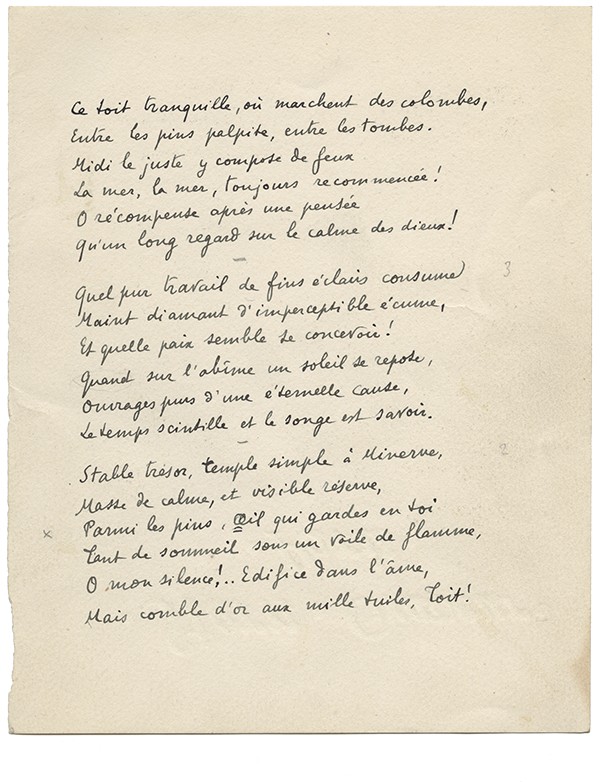 Ce toit tranquille, où marchent des colombes,
Entre les pins palpite, entre les tombes.
Midi le juste y compose de feux
La mer, la mer, toujours recommencée!
O récompense après une pensée
Qu'un long regard sur le calme des dieux!
Quel pur travail de fins éclairs consume 3
Maint diamant d'imperceptible écume,
Et quelle paix semble se concevoir!
Quand sur l'abîme un soleil se repose,
Ouvrages purs d'une éternelle cause,
Le temps scintille et le songe est savoir.
2
Stable trésor, temple simple à Minerve,
Masse de calme, et visible réserve,
x Parmi les pins, Œil qui gardes en toi
Tant de sommeil sous un voile de flamme,
O mon silence!.. Edifice dans l'âme,
Mais comble d'or aux mille tuiles, Toit!